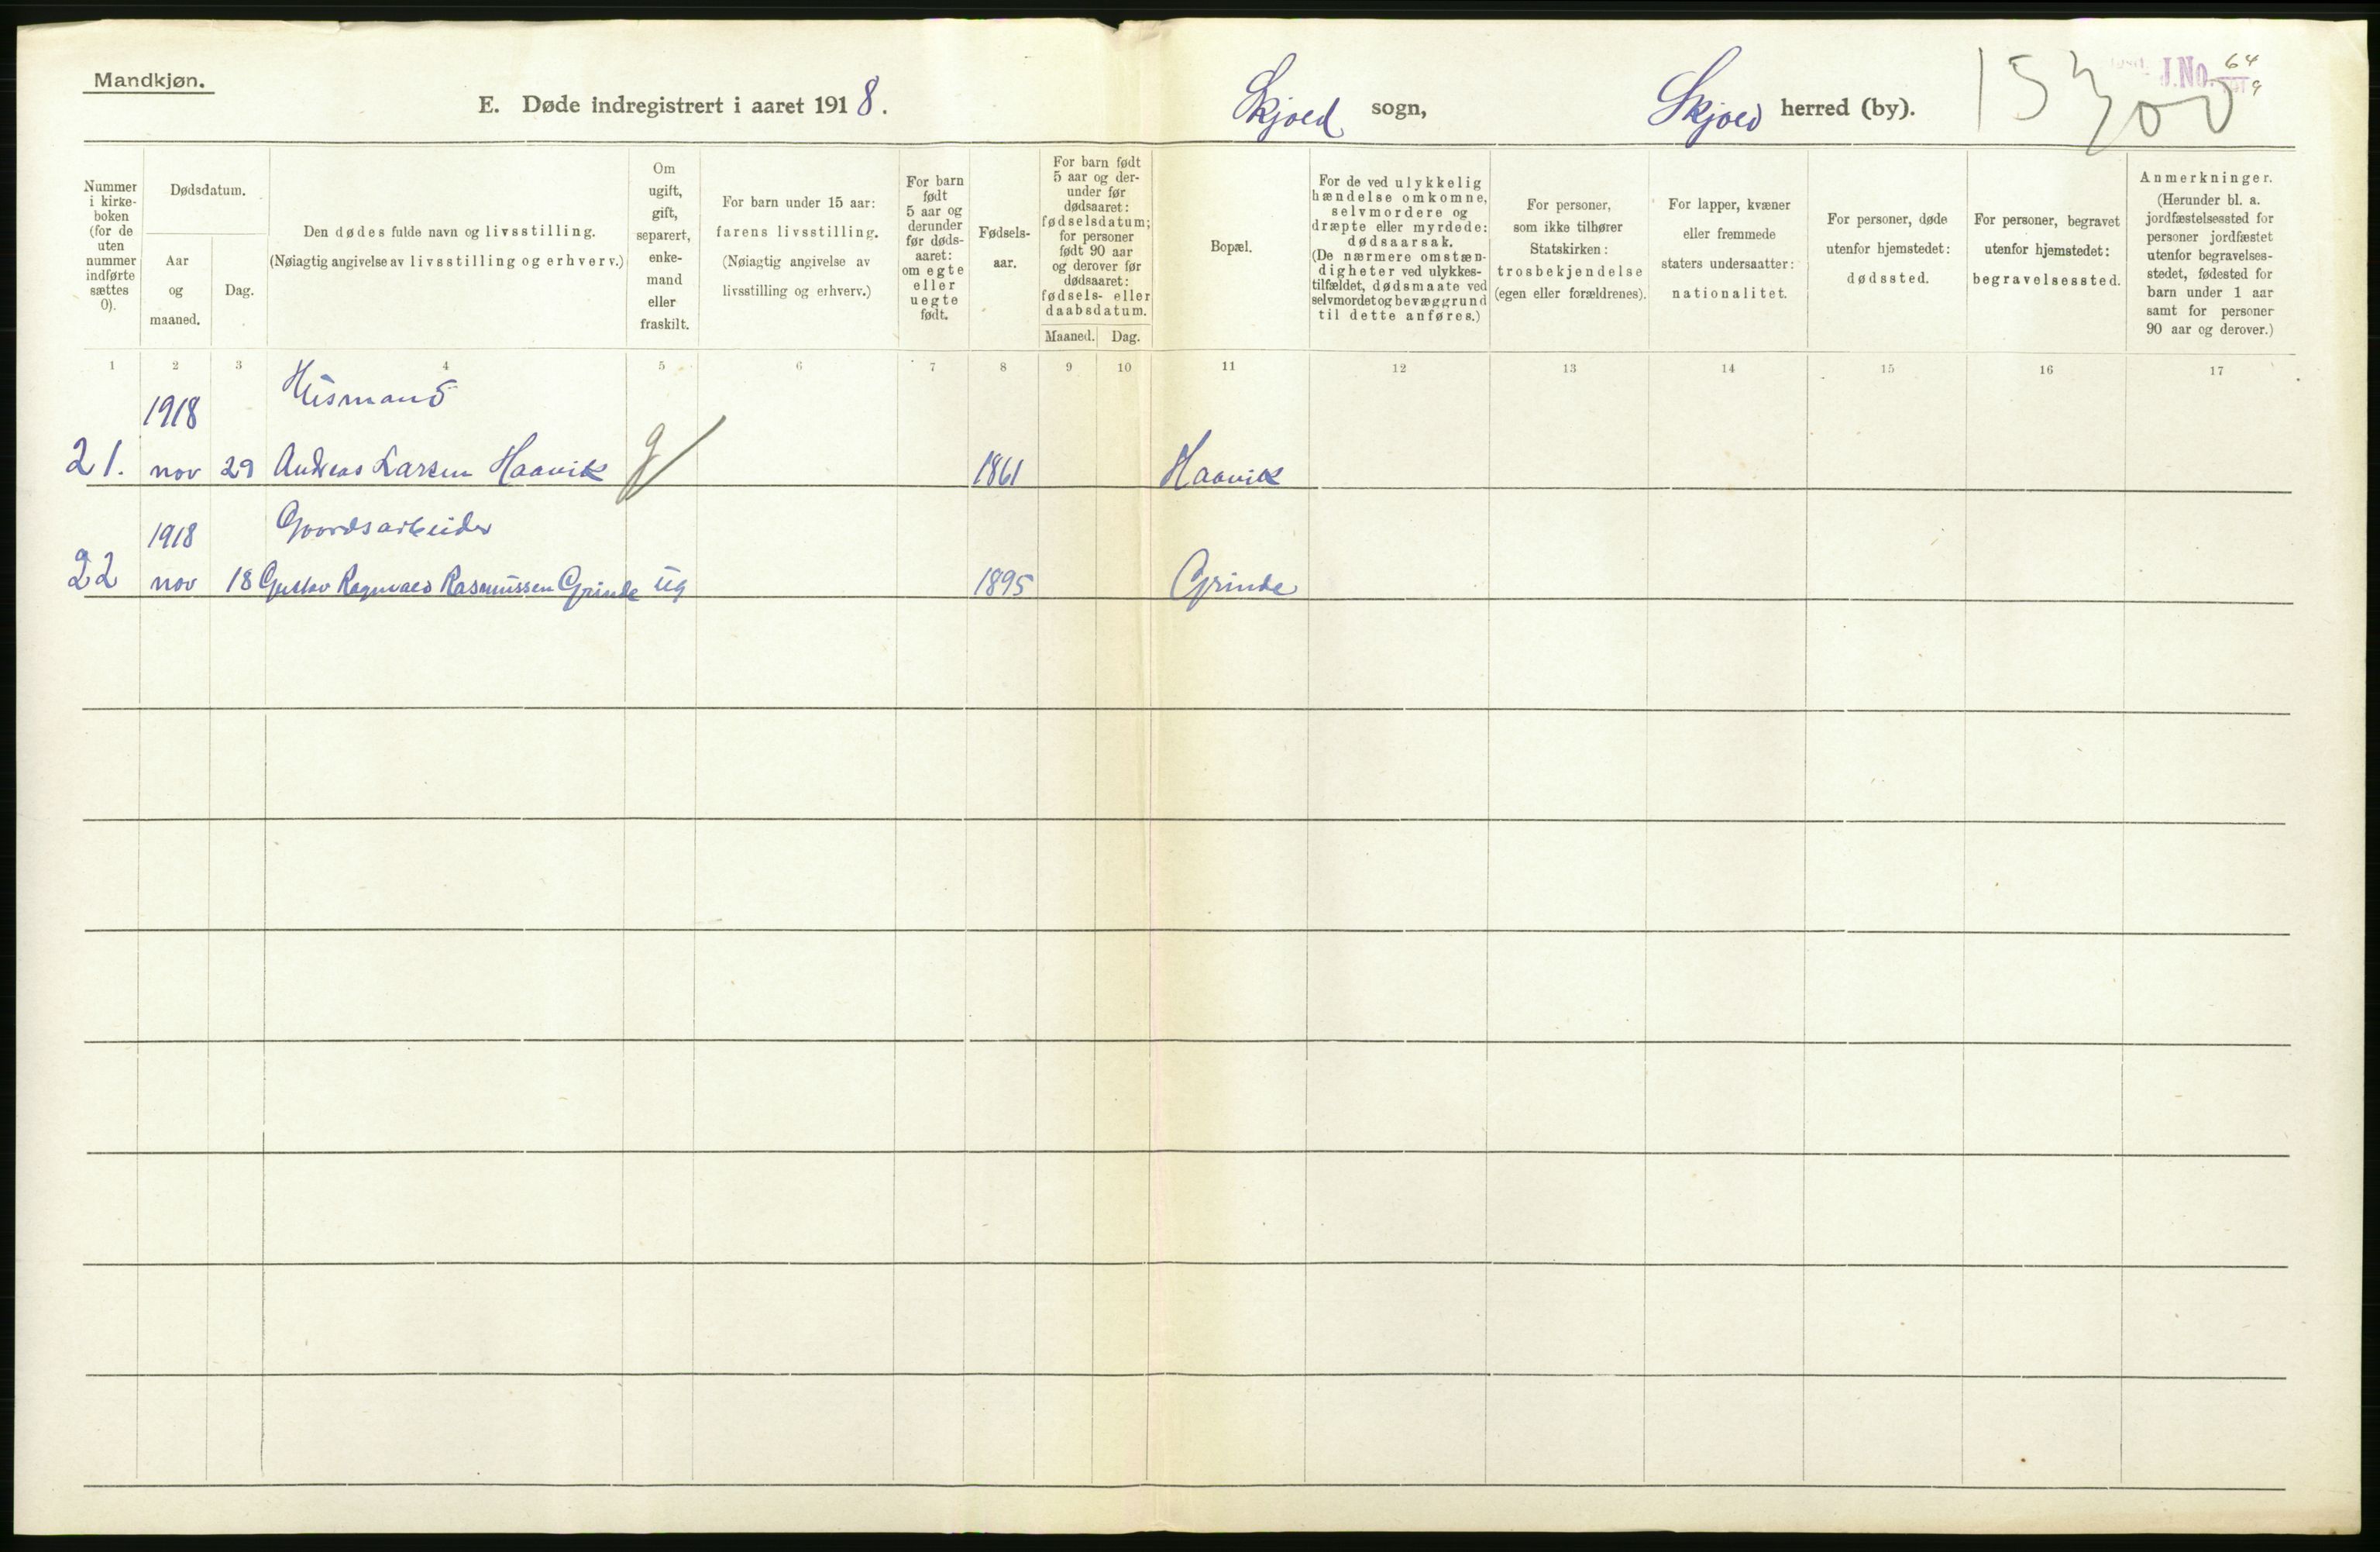 Mandkjøn.
E. Døde indregistrert i aaret 1918.
Skjold sogn,
Skjold herred (by).
J.No. 64
Nummer i kirke-
boken
(for de
uten
nummer
indførte
sættes
0).
Dødsdatum.
Aar
og
maaned.
Dag.
Den dødes fulde navn og livsstilling.
(Nøiagtig angivelse av livsstilling og erhverv.)
Om
ugift,
gift,
separert,
enke-
mand
eller
fraskilt.
For barn under 15 aar:
farens livsstilling.
(Nøiagtig angivelse av
livsstilling og erhverv.)
For barn
født
5 aar og
derunder
før døds-
aaret:
om egte
eller
uegte
født.
Fødsels-
aar.
For barn født
5 aar og der-
under før
dødsaaret:
fødselsdatum;
for personer
født 90 aar
og derover før
dødsaaret:
fødsels- eller
daabsdatum.
Maaned. Dag.
Bopæl.
For de ved ulykkelig
hændelse omkomne,
selvmordere og
dræpte eller myrdede:
dødsaarsak.
(De nærmere omstæn-
digheter ved ulykkes-
tilfældet, dødsmaate ved
selvmordet og bevæggrund
til dette anføres.)
For personer,
som ikke tilhører
Statskirken:
trosbekjendelse
(egen eller forældrenes).
For lapper, kvæner
eller fremmede
staters undersaatter:
nationalitet.
For personer, døde
utenfor hjemstedet:
dødssted.
For personer, begravet
utenfor hjemstedet:
begravelsessted.
Anmerkninger.
(Herunder bl. a.
jordfæstelsessted for
personer jordfæstet
utenfor begravelses-
stedet, fødested for
barn under 1 aar
samt for personer
90 aar og derover.)
1 2 3 4 5 6 7 8 9 10 11 12 13 14 15 16 17
1918 Husmand
21. nov 29 Andreas Larsen Haavik g 1861 Haavik
1918 Gaardsarbeider
22 nov 18 Gustav Ragnvald Rasmussen Grinde ug 1895 Grinde